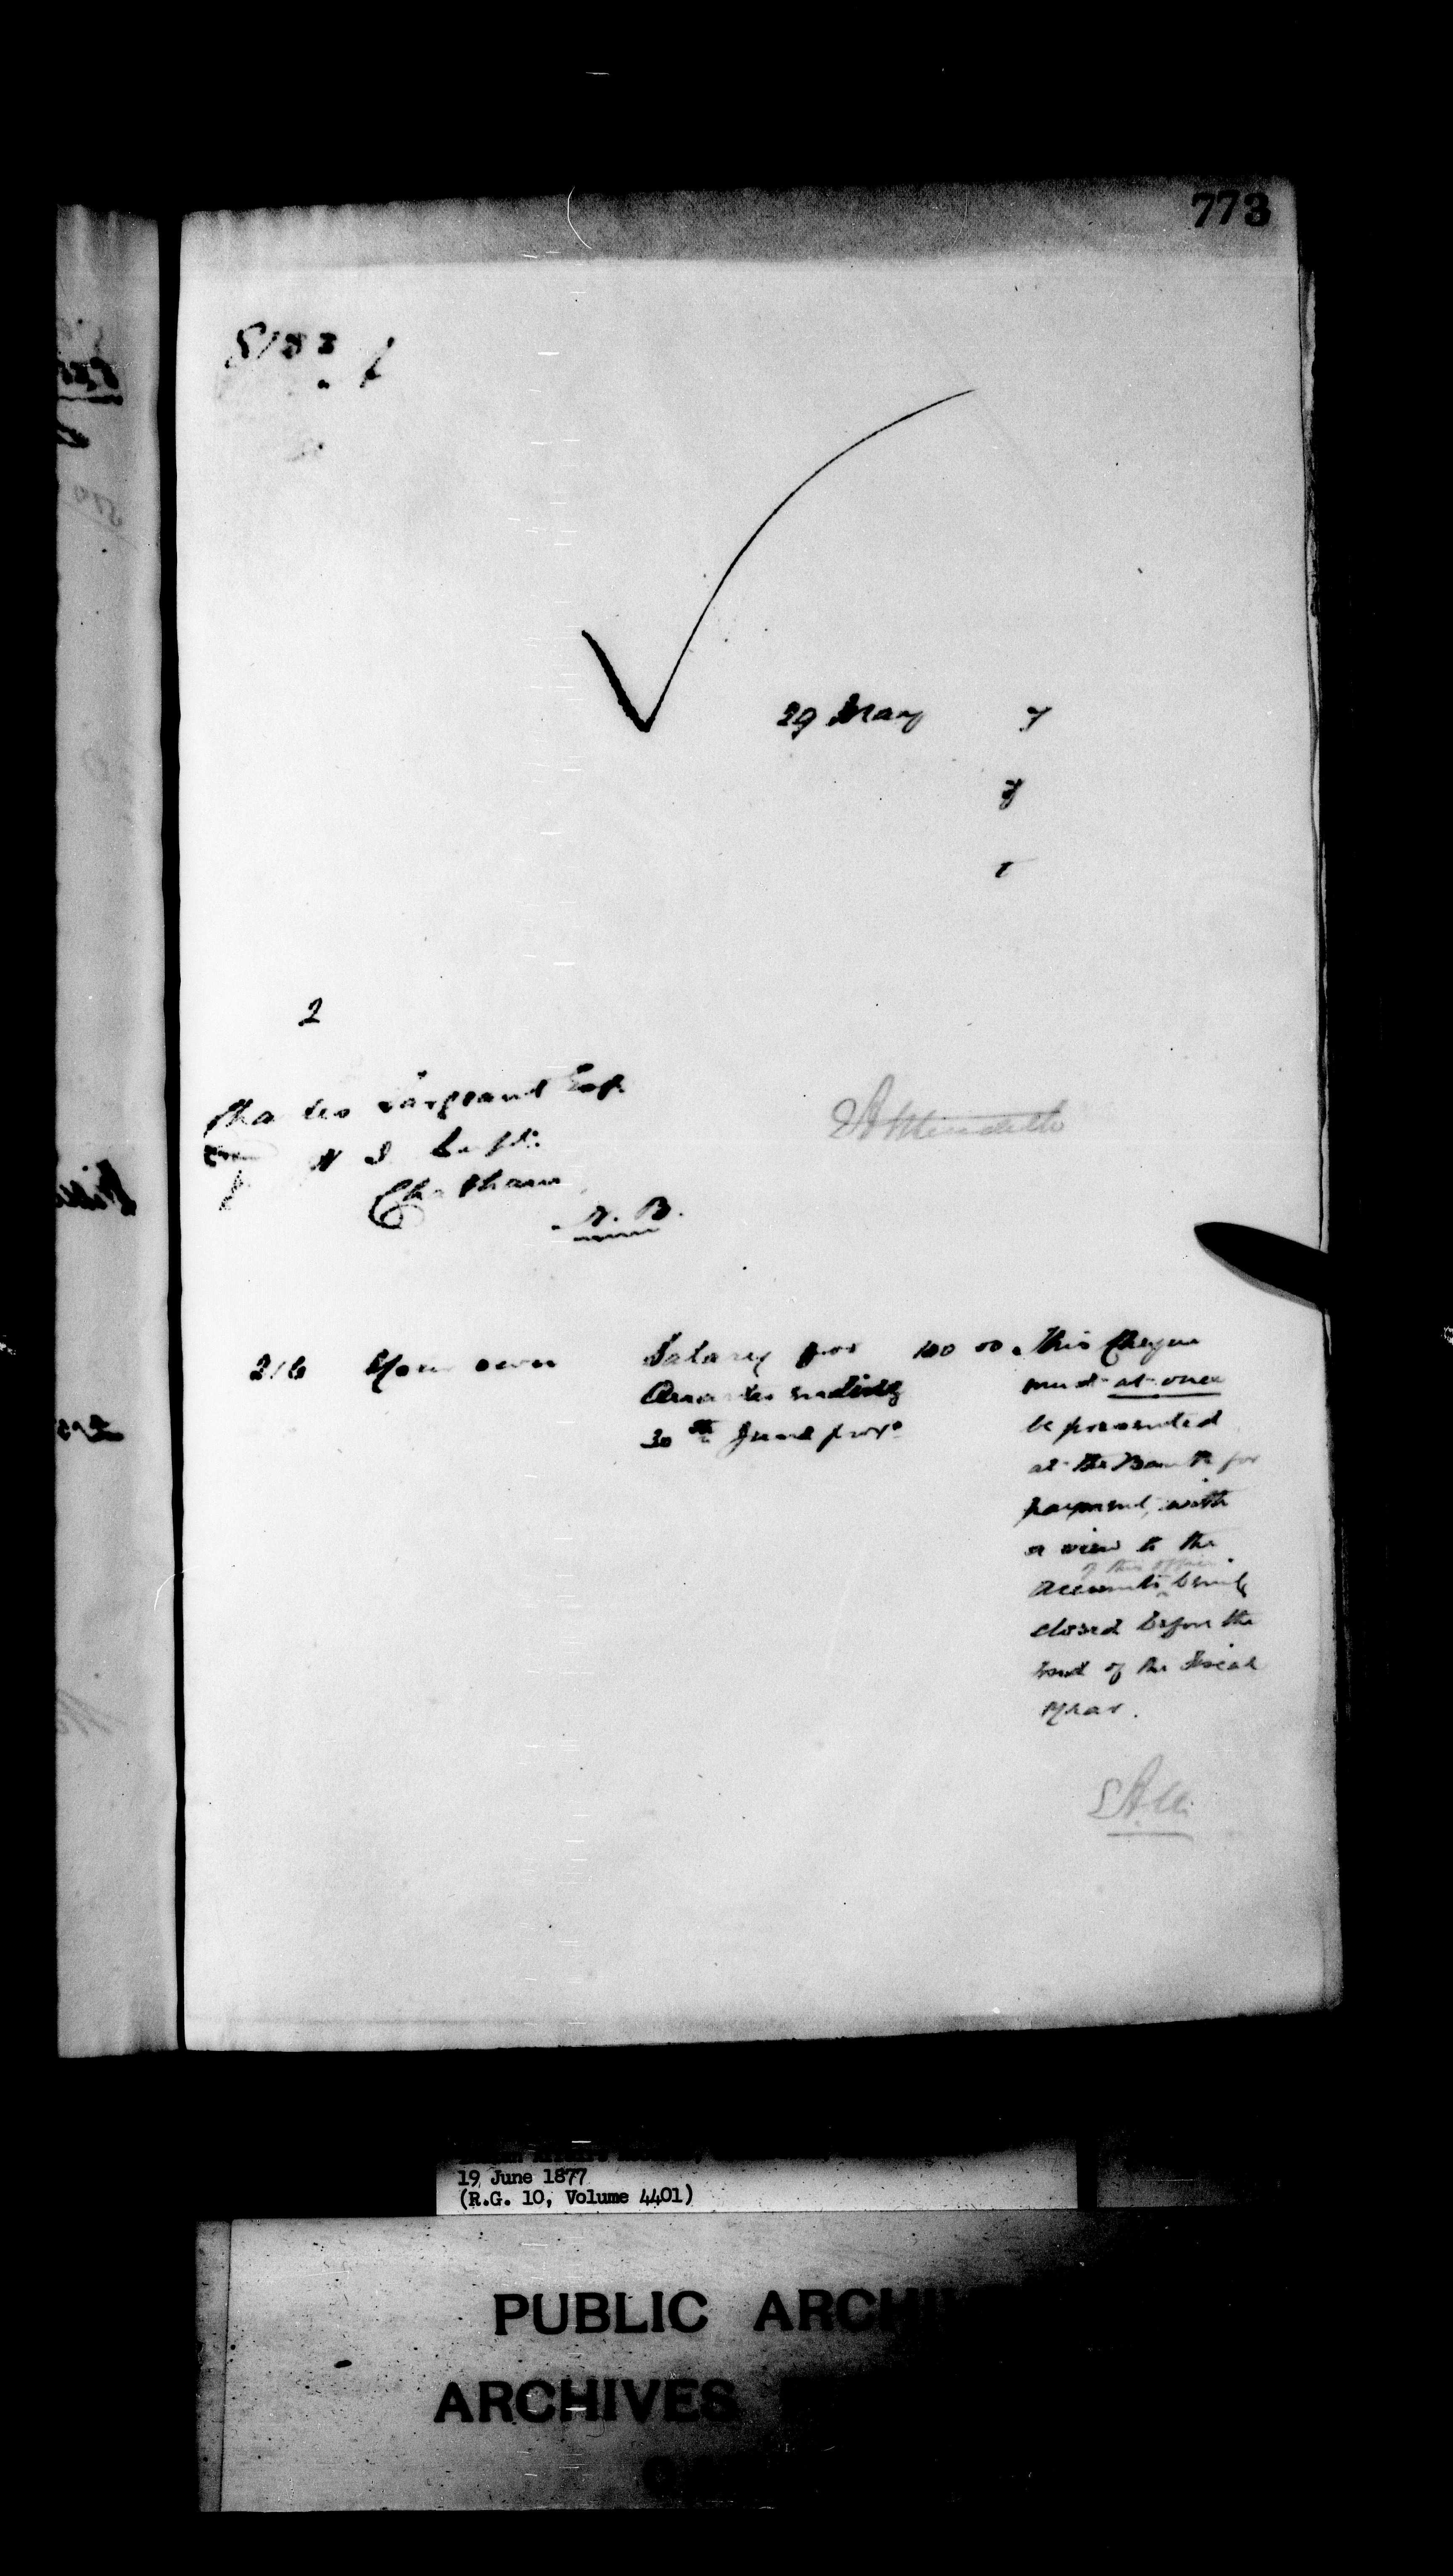 773
29 May 7
2
Charles Sargeant Esq.
N S Supt.
Chatham
N. B.
216 Your own Salary for 100 00 This Cheque
Quarter ending must at once
30th June proxo be presented
at the Bank for
payment, with
a view to the
of this office
accounts being
closed before the
end of the Fiscal
Year.
19 June 1877
(R.G. 10, Volume 4401)
PUBLIC
ARCHIVES